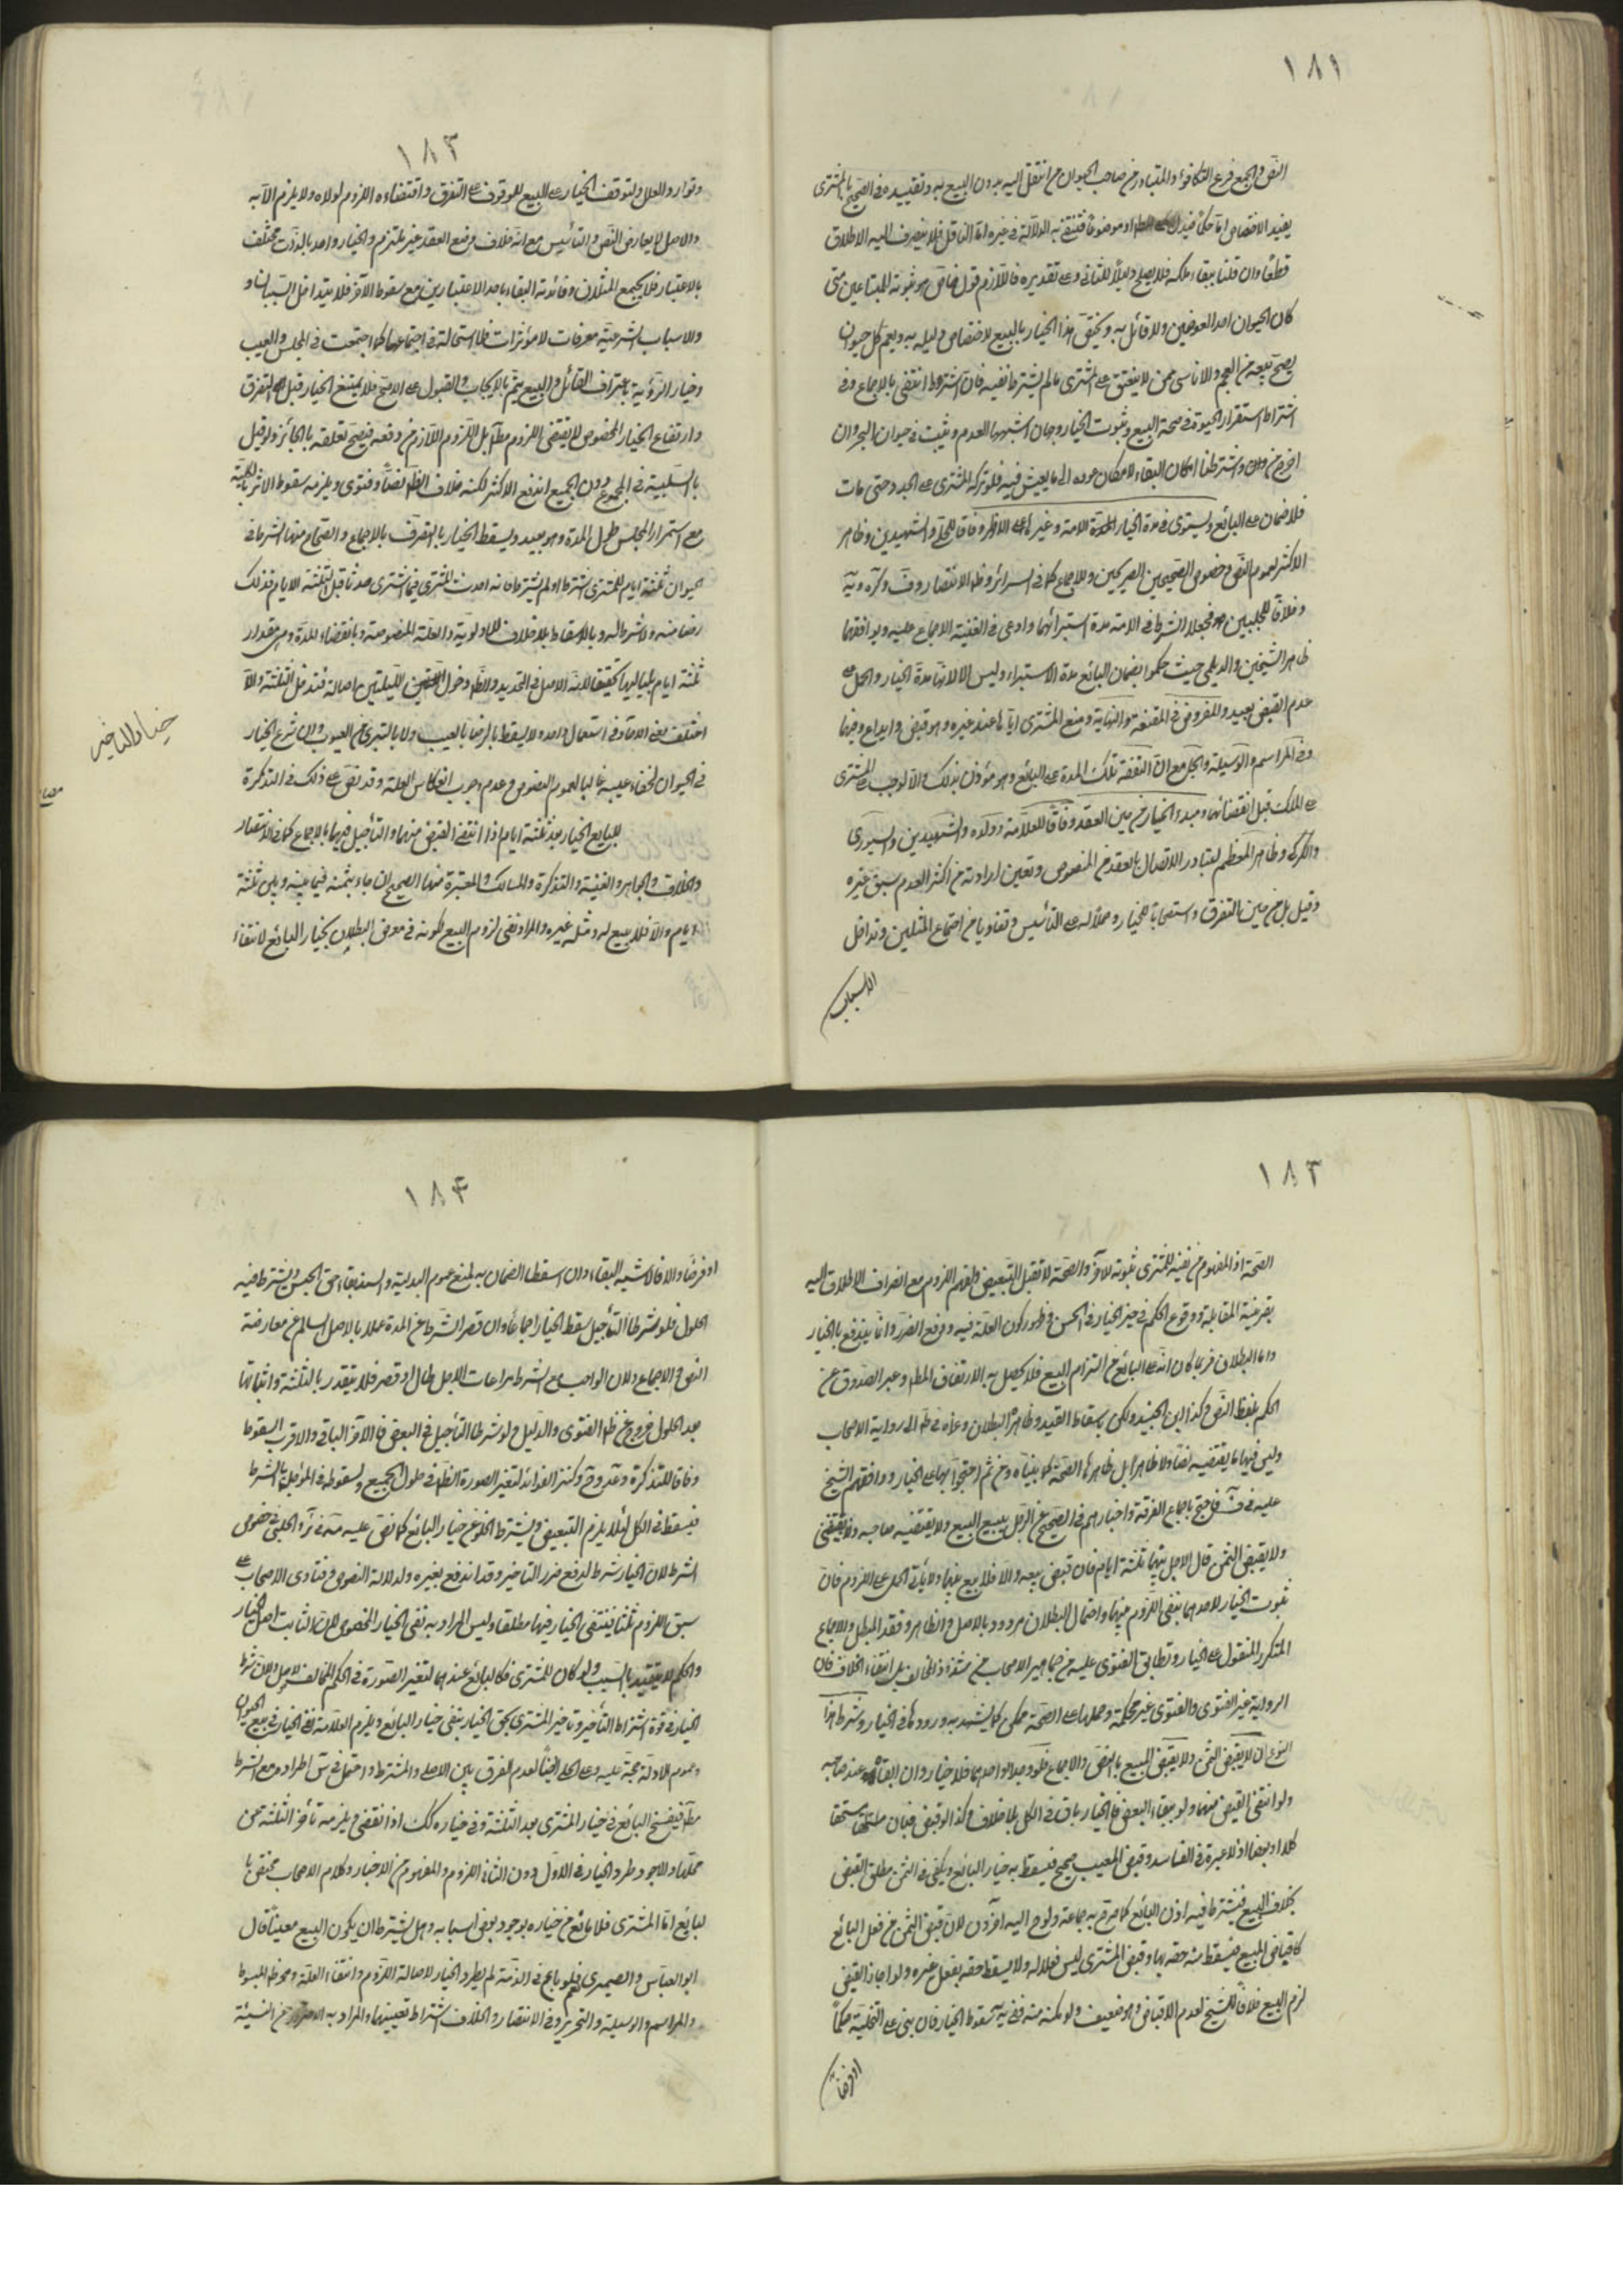 ١٨١
النص والجمع فرع التكافؤ والمتبادر من صاحب الحيوان من انتقل اليه بدون البيع به وتقييده في الصحيح بالمشتري
يفيد الاختصاص اما حكما فيدل على او موضوعا فتنتفي به الدلالة في غيره اما الناقل فلا ينصرف اليه الاطلاق
قطعا وان قلنا ببقاء ملكه فلا يصلح دليلا للثاني وعلى تقديره فاللازم قول خاص هو ثبوته للمتبايعين متى
كان الحيوان احد العوضين ولا قائل به ويختص هذا الخيار بالبيع لاختصاص دليله به ويعم كل حيوان
يصح بيعه من العجم والاناسي ممن لا ينعتق على المشتري ما لم يشترط نفيه فان اشترط انتفى بالاجماع وفي
اشتراط استقرار الحيوة في صحة البيع وثبوت الخيار وجهان اشبههما العدم ويثبت في حيوان البحر وان
اخرج من وشرطنا امكان البقاء لامكان عوده الى ما يعيش فيه فلو تركه المشتري على الجدد حتى مات
فلا ضمان على البائع ويستوي في مدة الخيار الامة وغيرها على الاظهر وفاقا للحلي والشهيدين وظاهر
الاكثر لعموم النص وخصوص الصحيحين الصريحين والاجماع كما في السرائر وظ الانتصار وف وكره وية
وخلافا للحلبيين فجعلا الشرط في الامة مدة استبرائها وادعى في الغنية الاجماع عليه ويوافقهما
ظاهر الشيخين والديلمي حيث حكموا بضمان البائع مدة الاستبراء وليس الا لانها مدة الخيار والحمل على
عدم القبض بعيد والمفروض في المقنعة والنهاية وضع المشتري اياها عند غيره وهو قبض وايداع وفيهما
وفي المراسم والوسيلة والجمل مع ان النفقة تلك المدة على البائع وهو مؤذن بذلك والا لوجب على المشتري
على الملك قبل انقضائها ومبدء الخيار من حين العقد وفاقا للعلامة وولده والشهيدين والسيوري
والكركي وظاهر المعظم لتبادر الاتصال بالعقد من المنصوص وتعين ارادته من اكثر العدم سبق غيره
وقيل بل من حين التفرق استصحابا للخيار وحملا له على التأسيس وتفاديا من اجتماع المثلين وتداخل
الاسباب
١٨٢
وتوارد العلل ولتوقف الخيار على البيع الموقوف على التفرق واقتضاءه اللزوم لولاه ولا يلزم الا به
والاصل لا يعارض النص والتأسيس مع انه خلاف وضع العقد غير ملتزم والخيار واحد بالذات مختلف
بالاعتبار فلا يجتمع المثلان وفائدته البقاء باحد الاعتبارين مع سقوط الاخر فلا يتداخل السببان و
والاسباب الشرعية معرفات لا مؤثرات فلا استحالة في اجتماعها كما اجتمعت في المجلس والعيب
وخيار الرؤية باعتراف القائل والبيع يتم بالايجاب والقبول على الاصح فلا يمتنع الخيار قبل التفرق
وارتفاع الخيار المخصوص لا يقتضي اللزوم مطلقا بل اللزوم اللازم من رفعه فيصح تعلقه بالجائز ولو قيل
بالسلبية في المجموع دون الجميع اندفع الاكثر لكنه خلاف الظاهر نصا وفتوى ويلزمه سقوط الاثر بالكلية
مع استمرار المجلس طول المدة وهو بعيد ويسقط الخيار بالتصرف بالاجماع والصحاح منها الشرط في
الحيوان ثلثة ايام للمشتري اشترط او لم يشترط فان احدث المشتري فيما اشترى حدثا قبل الثلثة الايام فذلك
رضا منه ولا شرط له وبالاسقاط بلا خلاف للاولوية والعلة المنصوصة وبانقضاء المدة وهي مقدار
ثلثة ايام بلياليها تحقيقا لانه الاصل في التحديد ولدخول الليلتين اصالة فتدخل الثالثة والا
اختلف معنى الاحاد في استعمال واحد ولا يسقط بالرضا بالعيب ولا بالتبري من العيوب وان شرع الخيار
في الحيوان لخفاء عيبه غالبا لعموم النصوص وعدم وجوب انعكاس العلة وقد نص على ذلك في التذكرة
للبايع الخيار بعد ثلثة ايام اذا انتفى القبض منهما والتأجيل فيهما بالاجماع كما في الانتصار
والخلاف والجواهر والغنية والتذكرة والمسالك والمعتبرة منها الصحيح ان جاء بثمنه فيما بينه وبين ثلثة
ايام والا فلا بيع له ومثله غيره والمراد نفي لزوم البيع لكونه في معرض البطلان بخيار البائع لا انتفاء
خيار التاخير
١٨٣
الصحة اذ المفهوم من نفيه للمشتري ثبوته للاخر والصحة لا تقبل التبعيض ولفهم اللزوم مع انصراف الاطلاق اليه
بقرينة المقابلة ووقوع الحكم في حيز الخيار في الحسن وظهور كون العلة فيه دفع الضرر وانما يندفع بالخيار
واما البطلان فربما كان اشد على البائع من التزام البيع فلا يحصل به الارتفاق المط وعبر الصدوق عن
الحكم بلفظ النص وكذا ابن الجنيد ولكن باسقاط القيد وظاهرهما البطلان وعزاه في ط الى رواية الاصحاب
وليس فيها ما يقتضيه نصا ولا ظاهرا بل ظاهرها الصحة كما بيناه ومن ثم احتجوا بها على الخيار ووافقهم الشيخ
عليه في ف فاحتج باجماع الفرقة واخبارهم في الصحيح عن الرجل يبيع البيع ولا يقبضه صاحبه ولا يقبض
ولا يقبض الثمن قال الاجل بينهما ثلثة ايام فان قبض بيعه والا فلا بيع بينهما ودلالته الحمل على اللزوم فان
ثبوت الخيار لاحدهما ينفي اللزوم منهما واحتمال البطلان مردود بالاصل والظاهر وفقد المبطل والاجماع
المتكرر المنقول على الخيار وتطابق الفتوى عليه من جماهير الاصحاب من شذوذ المخالف بل انتفاء الخلاف فان
الرواية غير الفتوى والفتوى غير محكمة وحملها على الصحة ممكن كما يشهد به ورودها في الخيار وشرط هذا
النوع ان لا يقبض الثمن ولا يقبض المبيع بالنص والاجماع فلو حصلا او احدهما فلا خيار وان ابقاه عند صاحبه
ولو انتفى القبض منهما ولو ببقاء البعض فالخيار باق في الكل بلا خلاف وكذا لو قبض فبان مستحقا
كلا او بعضا اذ لا عبرة في الفاسد وقبض المعيب صحيح فيسقط به خيار البائع ويكفي في الثمن مطلق القبض
بخلاف المبيع فيشترط فيه اذن البائع كما صرح به جماعة ولوح اليه اخرون لان قبض الثمن من فعل البائع
كاقباض المبيع فيسقط منه حقه بهما وقبض المشتري ليس فعلا له ولا يسقط حقه بفعل غيره ولو اجاز القبض
لزم البيع خلافا للشيخ لعدم الاقباض وهو ضعيف ولو مكنه منه ففي ية سقوط الخيار فان بنى على التخلية حكما
او فرضا
١٨٤
او فرضا والا فالاشبه البقاء وان اسقطنا الضمان به لمنع عموم البدلية والسند بقاء حق الحبس ويشترط فيه
الحلول فلو شرطا التأجيل سقط الخيار اجماعا وان قصر الشرط عن المدة عملا بالاصل السالم عن معارضة
النص والاجماع ولان الواجب مع الشرط مراعات الاجل طال او قصر فلا يتقدر بالثلثة واثباتها
بعد الحلول خروج عن ظ الفتوى والدليل ولو شرطا التأجيل في البعض فالاخر الباقي والاقرب السقوط
وفاقا للتذكرة وعد وح وكنز الفوائد لتغير الصورة الظ في حلول الجميع ولسقوطه في المؤجل بالشرط
فيسقط في الكل لئلا يلزم التبعيض ويشترط الخلو عن خيار البائع كما نص عليه مة في ئر والحلي في خصوص
الشرط لان الخيار شرط لدفع ضرر التاخير وقد اندفع بغيره ولدلالة النصوص وفتاوى الاصحاب على
سبق اللزوم ثلثا فينتفي الخيار فيها مطلقا وليس المراد به نفي الخيار المخصوص لان الثابت اصل الخيار
والحكم لا يتقيد بالسبب ولو كان للمشتري فكالبائع عندهما لتغير الصورة في الحكم المخالف للاصل ولان شرط
الخيار في قوة اشتراط التأخير وتاخير المشتري بحق الخيار ينفي خيار البائع ويلزم العلامة نفي الخيار في بيع الحيوان
وعموم الادلة حجة عليه وعلى الحلي ايضا لعدم الفرق بين الاصلي والمشترط واحتمل في س اطراده مع الشرط
مطلقا فيفسخ البائع في خيار المشتري بعد الثلثة وفي خياره كك اذا انقضى ويلزمه تأخر الثلثة عن
محلها والاجود طرد الخيار في الاول دون الثاني اللزوم والمفهوم من الاخبار وكلام الاصحاب مختص با
لبائع اما المشتري فلا مانع من خياره بوجود بعض اسبابه وهل يشترط ان يكون المبيع معينا قال
ابو العباس والصيمري نعم فلو باع في الذمة لم يطرد الخيار لاصالة اللزوم وانتفاء العلة وهو ظ المبسوط
والمراسم والوسيلة والتحرير وفي الانتصار والخلاف اشتراط تعيينهما والمراد به الاحتراز عن النسيئة